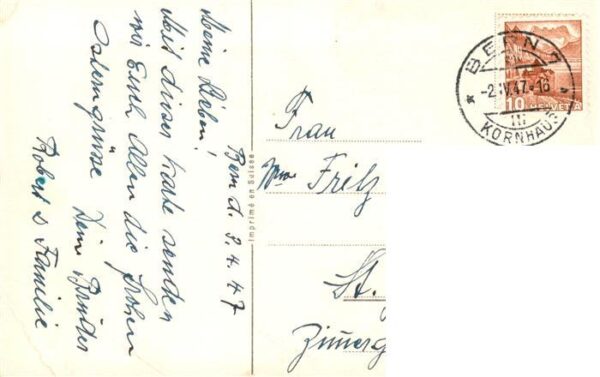 Bern d. 3.4.47
Meine Lieben!
Mit dieser Karte senden
wir Euch Allen die frohen
Ostergrüsse Dein Bruder
Robert & Familie
Imprimé en Suisse
Frau
Wwe Fritz
St.
Zimerg
BERN 1
-2.IV.47.-18
III
KORNHAUS
10 HELVETIA